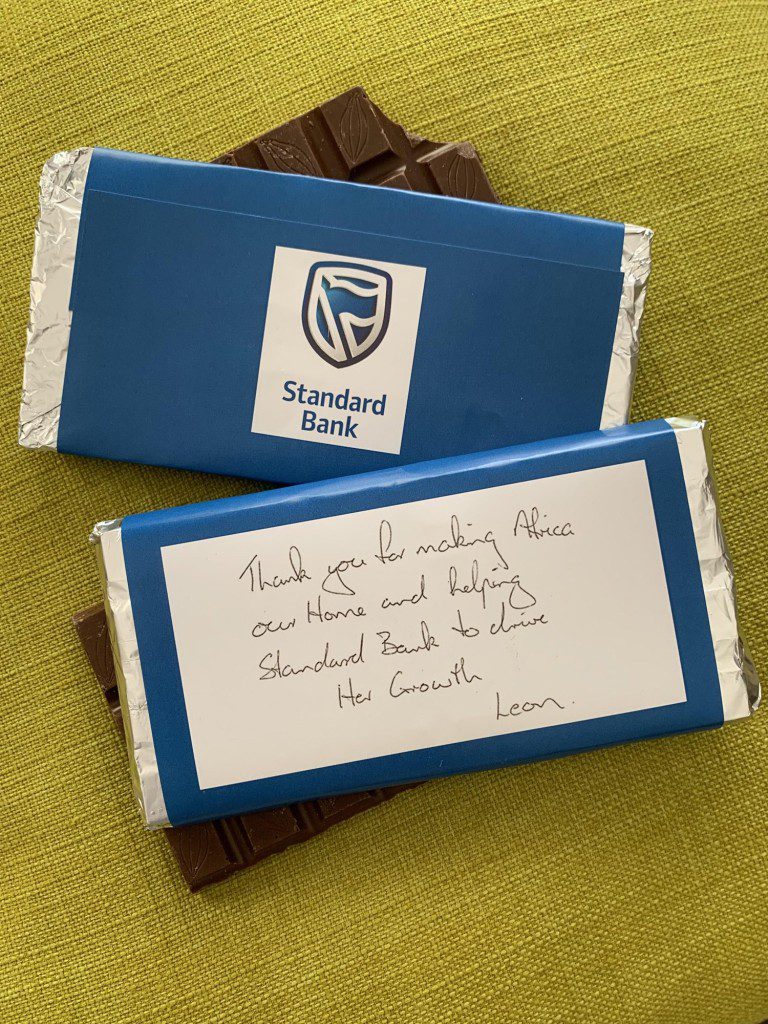 Standard
Bank
Thank you for making Africa
our Home and helping
Standard Bank to drive
Her Growth
Leon.